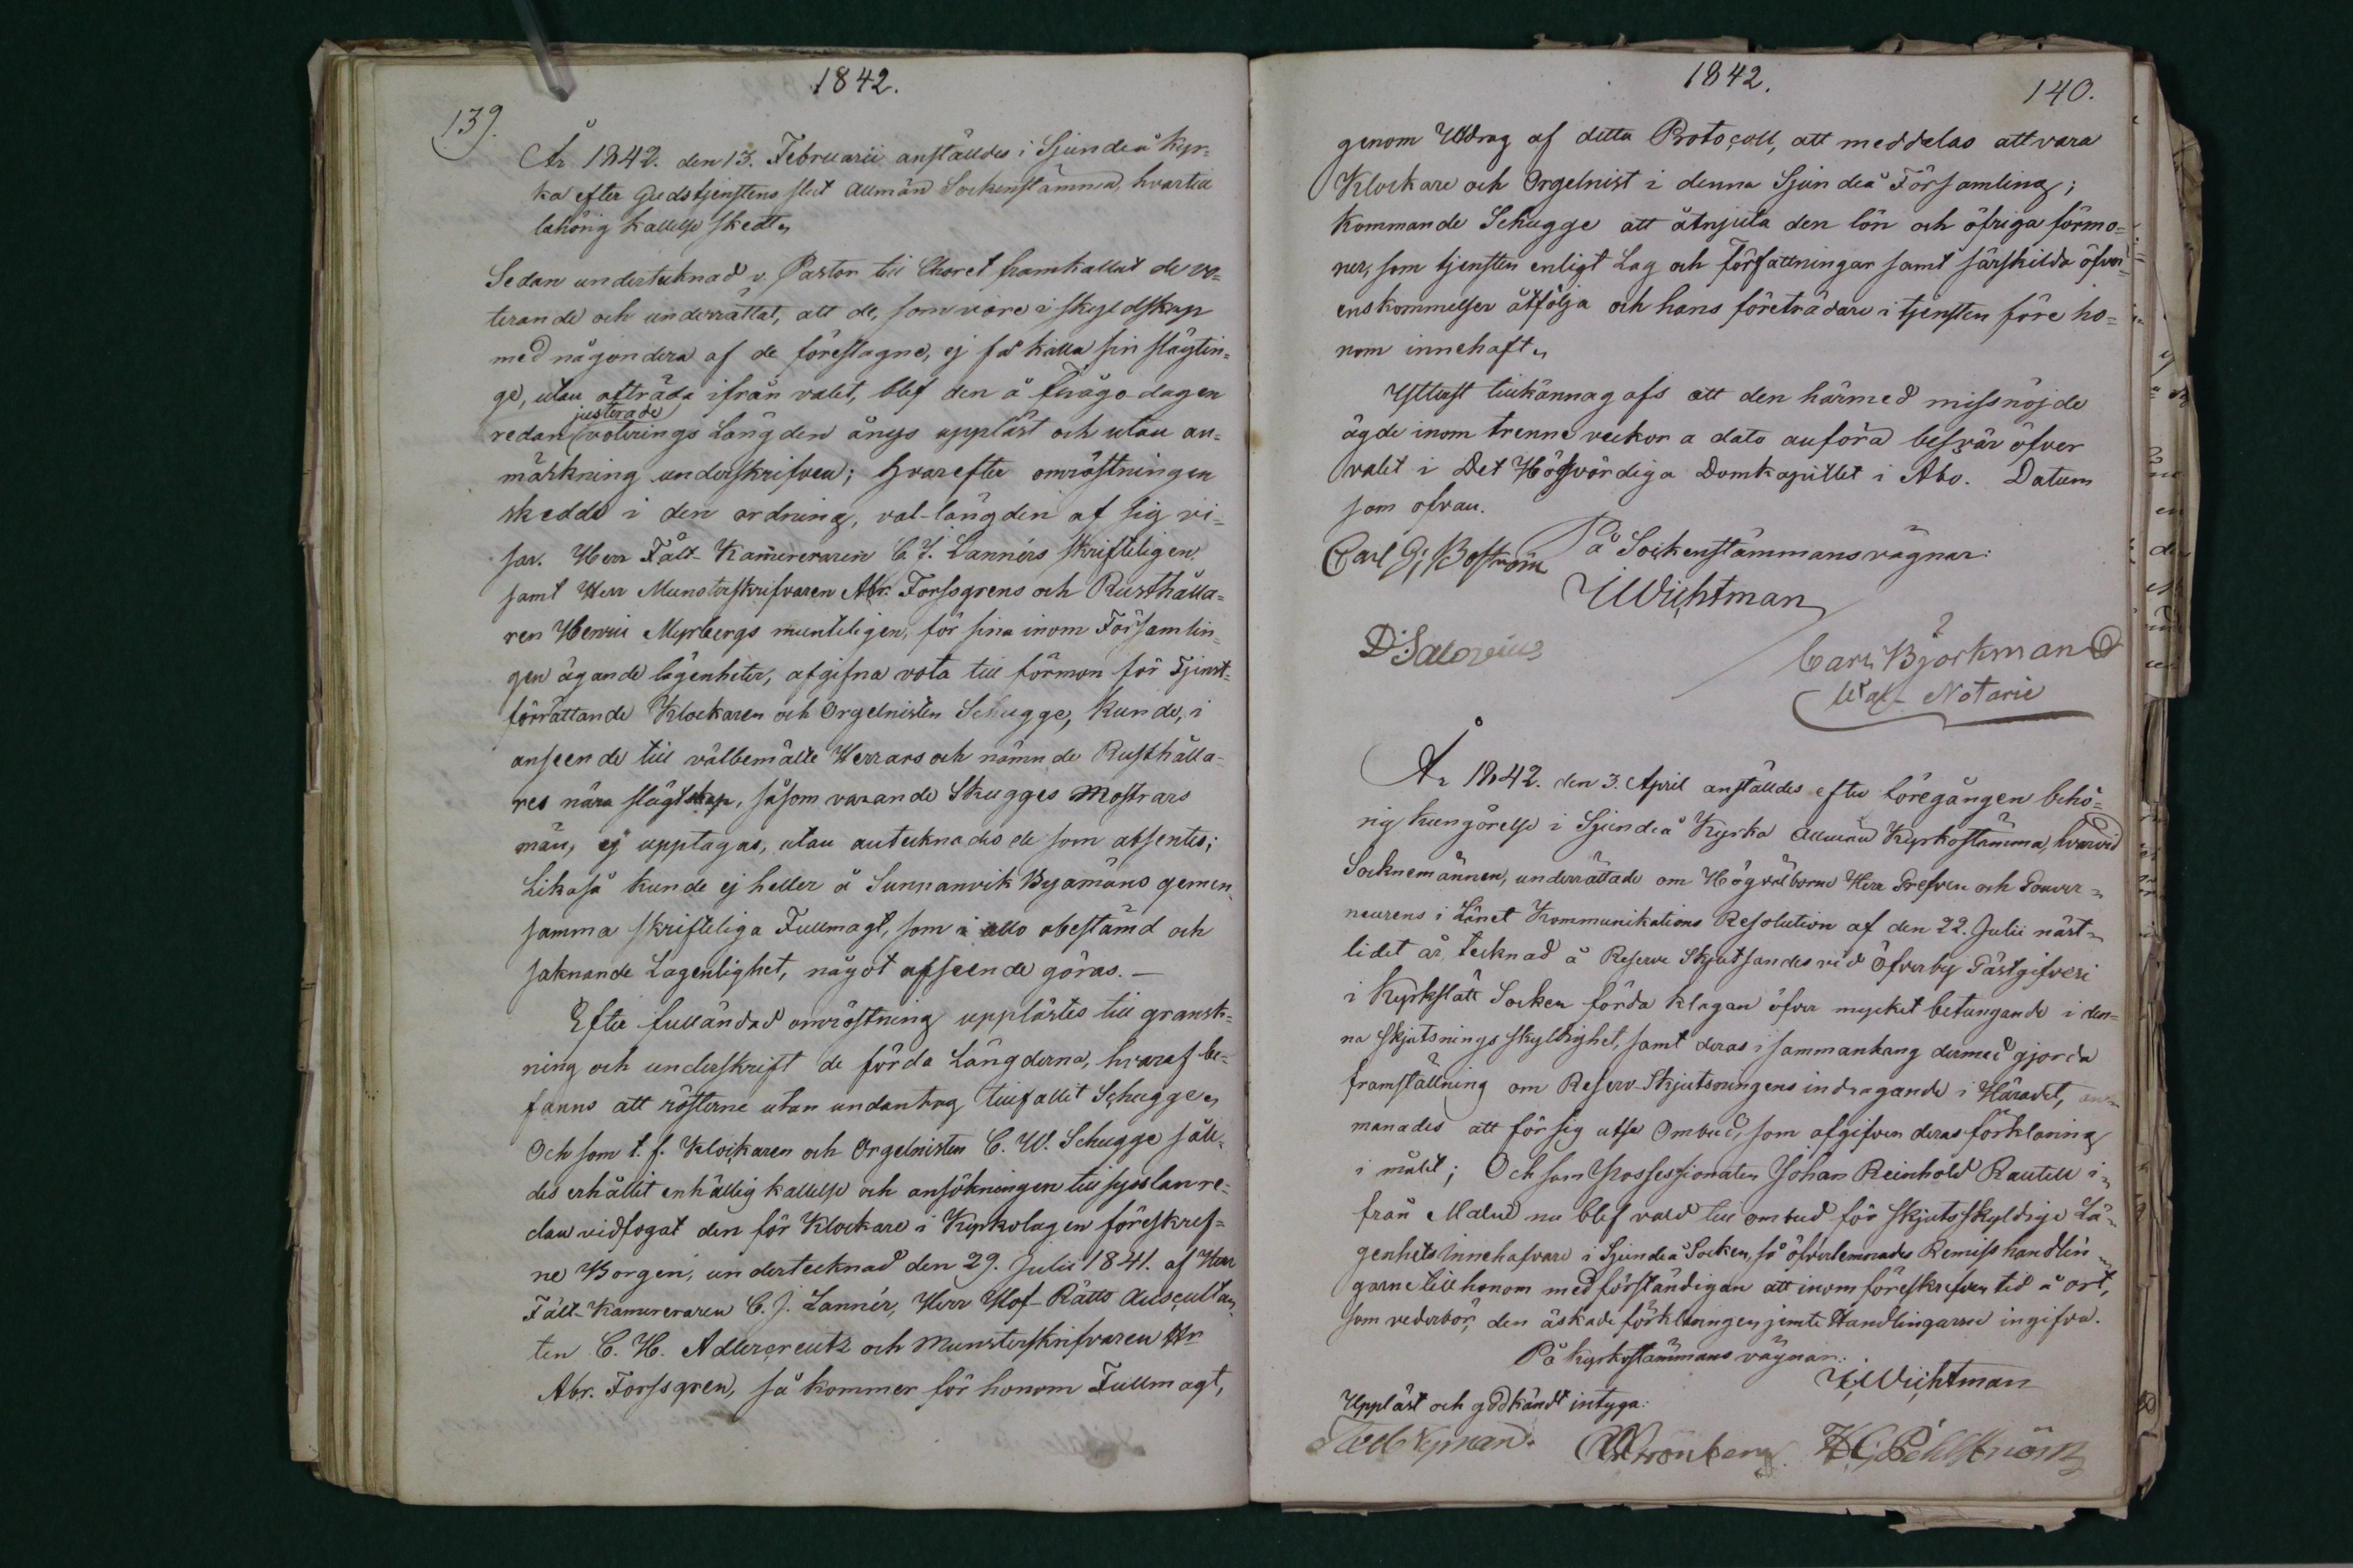 1842.
139.
År 1842. den 13. Februarii anställdes i Sjundeå Kyr=
ka efter Gudstjenstens slut Allmän Sockenstämma, hvartill
lahörig kallelse skedt.
Sedan undertecknad v. Pastor till Choret framkallat de vo=
terande och underrättat, att de, som vore i skyldskap
med någondera af de föreslagne, ej få kalla sin slägtin=
ge, utan afträda ifrån valet, blef den å Frågo-dagen
justerade
redan voterings Längden ånyo uppläst och utan an=
märkning underskrifven; Hvarefter omröstningen
skedde i den ordning, val-längden af sig vi=
sar. Herr Fält-Kamereraren C J. Lannérs skrifteligen
samt Herr Munsterskrifvaren Abr. Forssgrens och Rusthålla=
ren Henric Myrbergs munteligen, för sina inom Församlin=
gen ägande lägenheter, afgifna vota till förmon för Tjenst=
förrättande Klockaren och Orgelnisten Schugge, kunde, i
anseende till välbemälte Herrars och nämnde Rusthålla=
res nära slägtskap, såsom varande Skugges Mostrars
män, ej upptagas, utan antecknades de som absentes;
Likaså kunde ej heller å Sunnanvik Byamäns gemen=
samma skrifteliga Fullmagt, som i allo obestämd och
saknande Lagenlighet, något afseende göras. —
Efter fulländad omröstning upplästes till gransk=
ning och underskrift de förda Längderna, hvaraf be=
fanns att rösterne utan undantag tillfallit Schugge.
Och som t. f. Klockaren och Orgelnisten C. W. Schugge såle=
des erhållit enhällig kallelse och ansökningen till sysslan re=
dan vidfogat den för Klockare i Kyrkolagen föreskref=
ne Borgen, undertecknad den 29. Julii 1841. af Herr
Fält-Kamereraren C. J. Lannér, Herr Hof-Rätts Auscultan=
ten C. H. Adlercreutz och Munsterskrifvaren Hr
Abr. Forssgren, så kommer för honom Fullmagt,
1842.
140.
genom Utdrag af detta Protocoll, att meddelas att vara
Klockare och Orgelnist i denna Sjundeå Församling;
kommande Schugge att åtnjuta den lön och öfriga förmo=
ner, som tjensten enligt Lag och författningar samt särskilda öfver=
enskommelser åtfölja och hans företrädare i tjensten före ho=
nom innehaft.
Ytterst tillkännagafs att den härmed missnöjde
ägde inom trenne veckor a dato anföra besvär öfver
valet i Det Högvördiga Domkapitlet i Åbo. Datum
som ofvan.
På Sockenstämmans vägnar:
Carl G: Boström
Wichtman
D: Salovius
Carl Björkman
Val-Notarie
År 1842. den 3. April anställdes efter föregången behö=
rig kungörelse i Sjundeå Kyrka Allmän Kyrkostämma, hvarvid
Socknemännen, underrättade om Högvälborne Herr Grefven och Gouver=
neurens i Länet Kommunikations Resolution af den 22. Julii näst=
lidet år, tecknad å Reserve Skjutsandes vid Öfverby Gästgifveri
i Kyrkslätt Socken förda klagan öfver mycket betungande i den=
na skjutsnings skyldighet, samt deras i sammanhang dermed gjorda
framställning om Reserv-Skjutsningens indragande i Häradet, an=
manades att för sig utse Ombud, som afgifven deras förklaring
i målet; Och som Possessionaten Johan Reinhold Rautell i=
från Malm nu blef vald till ombud för skjutsskyldige Lä=
genhets Innehafvare i Sjundeå Socken, så öfverlemnades Remiss handlin=
garne till honom med förständigan att inom föreskrefven tid å ort,
som vederbör, den äskade förklaringen jemte Handlingarne ingifva.
På Kyrkostämmans vägnar:
Wichtman
Uppläst och godkändt intyga:
Nyman. Grönberg.